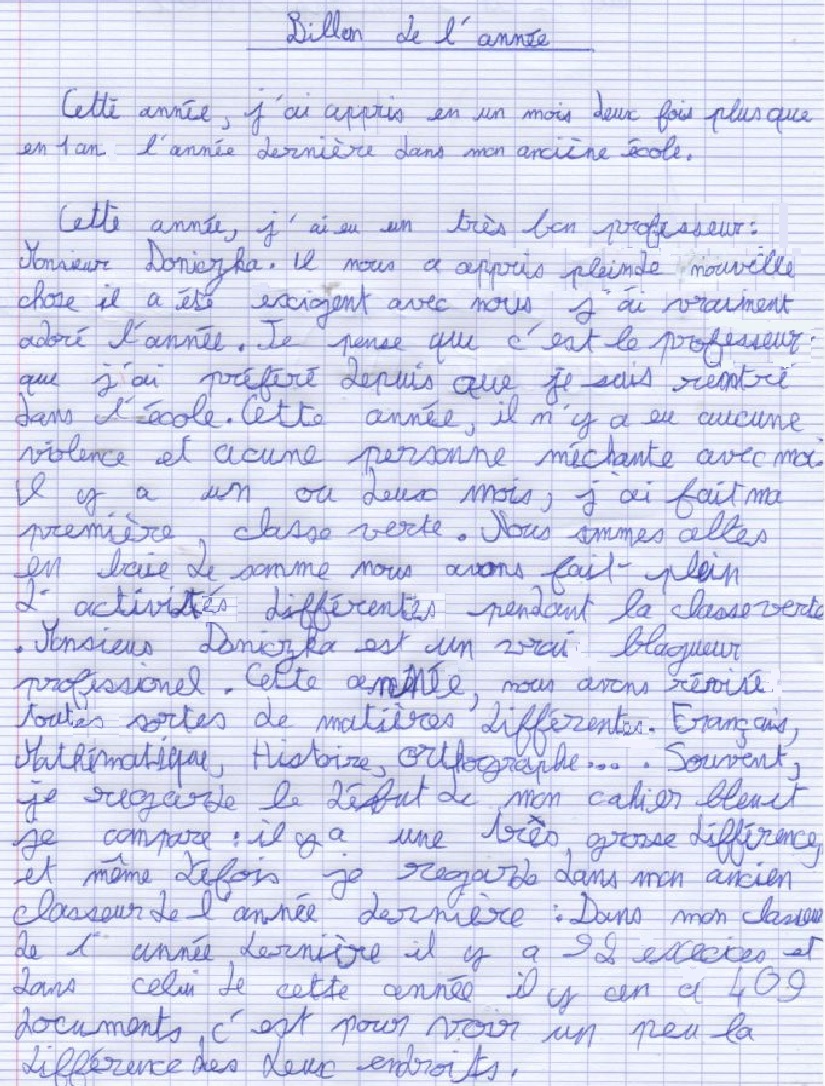 Billan de l'année
Cette année, j'ai appris en un mois deux fois plus que
en 1 an l'année dernière dans mon anciène école.
Cette année, j'ai eu un très bon professeur :
Monsieur Doniczka. il nous a appris pleinde nouvelle
chose il a été exigent avec nous j'ai vraiment
adoré l'année. Je pense que c'est le professeur
que j'ai préféré depuis que je suis rentré
dans l'école. Cette année, il n'y a eu aucune
violence et acune personne méchante avec moi.
il y a un ou deux mois, j'ai fait ma
première classe verte. Nous ommes alles
en baie de somme nous avons fait plein
d'activités différentes pendant la classe verte
. Monsieur Doniczka est un vrai blagueur
profissionel. Cette année, nous avons révisé
toutes sortes de matières différentes. Français,
Mathématique, Histoire, Orthographe.... Souvent,
je regarde le début de mon cahier bleu et
je compare : il y a une très grosse différence,
et même défois je regarde dans mon ancien
classeur de l'année dernière : Dans mon classeur
de l'année dernière il y a 92 execices et
dans celui de cette année il y en a 409
documents c'est pour voir un peu la
différence des deux endroits.